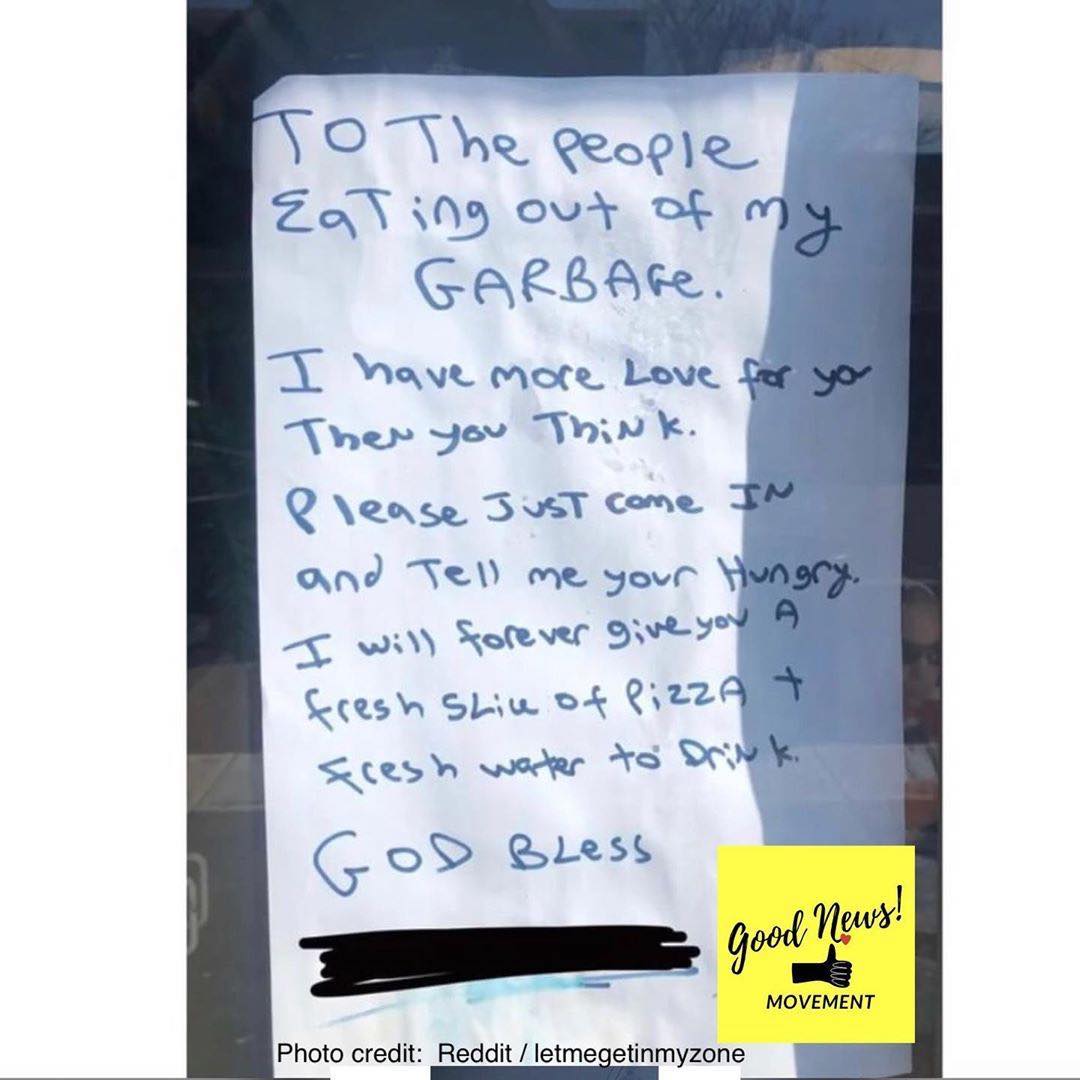 To The people
Eating out of my
GARBAGe.
I have more Love for you
Then you Think.
Please Just come IN
and Tell me your Hungry.
I will forever give you A
fresh SLice of PizzA +
fresh water to Drink.
GOD BLess
Good News!
MOVEMENT
Photo credit: Reddit / letmegetinmyzone